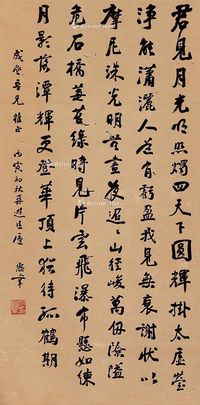 君見月光明照燭四天下圓輝掛太虛瑩
淨能瀟灑人道有虧盈我見無衰謝狀似
摩尼珠光明無晝夜迢迢山徑峻萬仞險隘
危石橋莓苔綠時見片雲飛瀑布懸如練
月影落潭輝更登華頂上猶待孤鶴期
吾兄雅正 丙寅初秋再遊匡廬